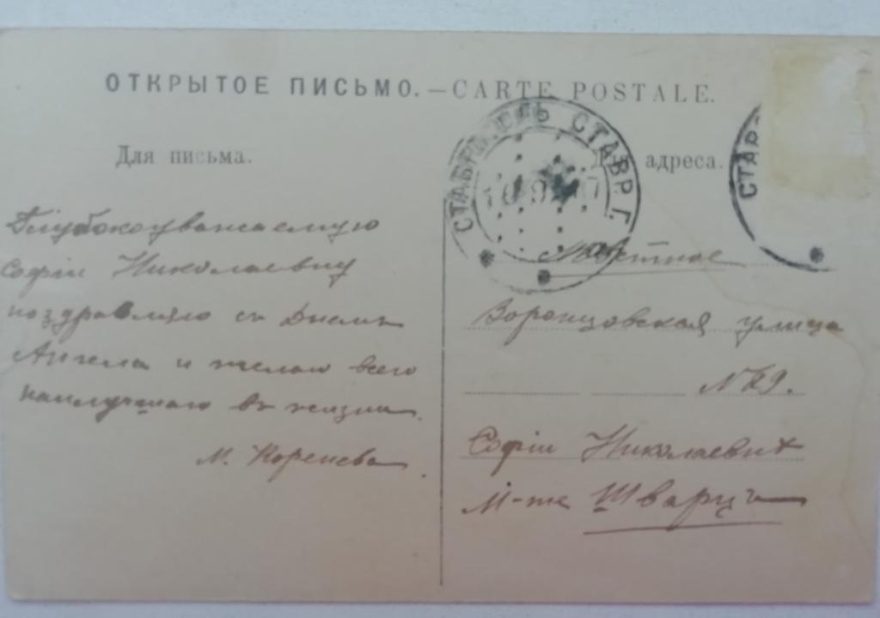 ОТКРЫТОЕ ПИСЬМО. — CARTE POSTALE.
Для письма.
Для адреса.
СТАВРОПОЛЬ СТАВР. Г.
СТАВ
Глубокоуважаемую
Софію Николаевну
поздравляю съ Днемъ
Ангела и желаю всего
наилучшаго въ жизни.
М. Коренева
Мѣстное
Воронцовская улица
№ 69.
Софіи Николаевнѣ
М-me Шварцъ